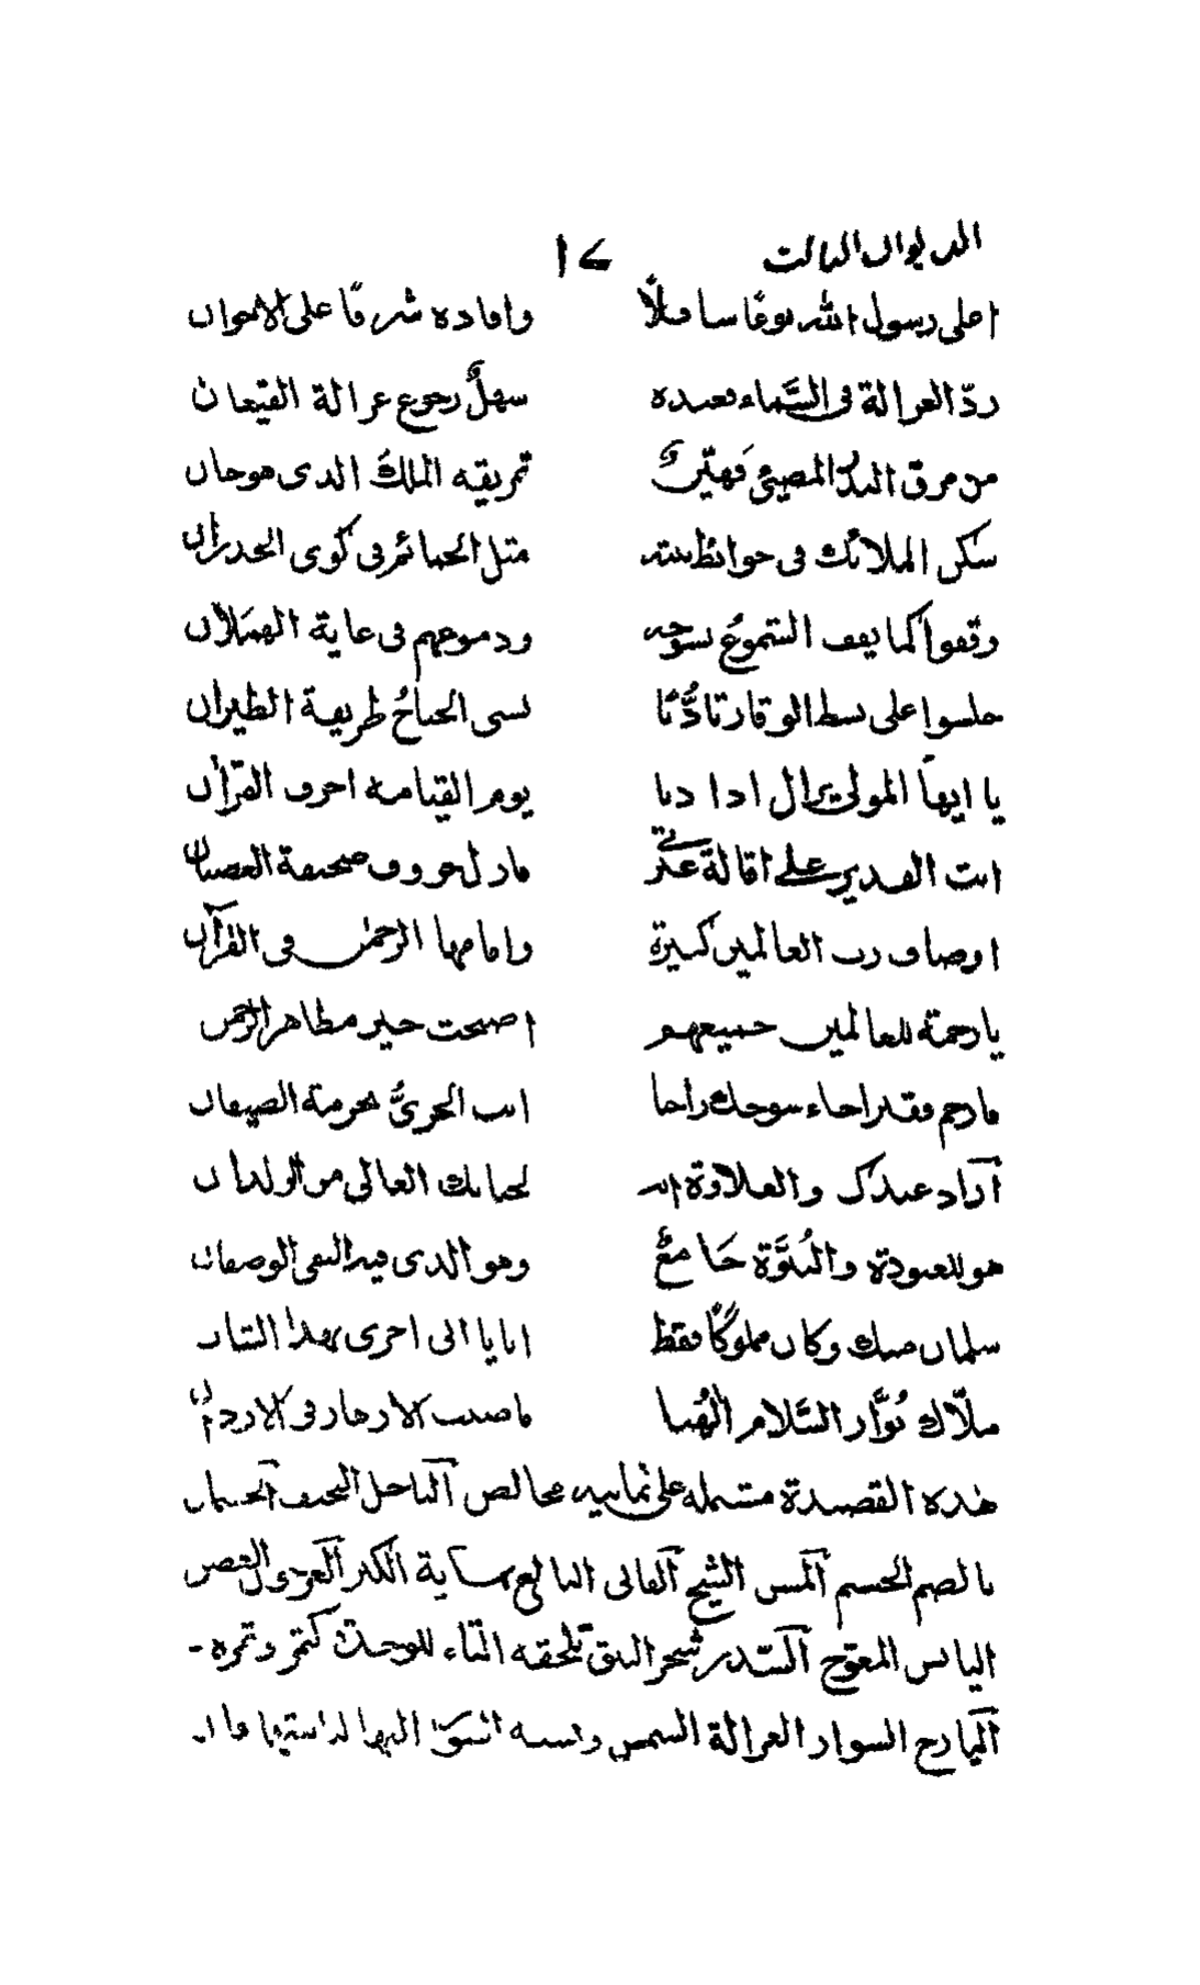 الديوان الثالث ١٧
اعلى رسول الله نوعا سافلًا وافاده شرفًا على الاخوان
ردّ الغزالة فى السَّماء فعبده سهلٌ رجوع غزالة القيعان
من مزق البدرَ المضيئ فهيّنٌ تمزيقه الملكَ الذى هو جان
سكن الملائك فى حوائط بيته مثل الحمائم فى كوى الجدران
وقفوا كما يقف الشموعُ بسوحه ودموعهم فى غاية الهملان
جلسوا على بسط الوقار تأدُّبًا نسى الجناحُ طريقة الطيران
يا ايها المولى يزال اذا دنا يوم القيامة احرف القرآن
انت القدير على اقالة عثرتى فازل حروف صحيفة العصيان
اوصاف رب العالمين كثيرة وامامها الرحمٰن فى القرآن
يا رحمة للعالمين جميعهم اصبحت خير مظاهر الرحمن
فارحم فقيرا جاء سوحك راجيا انت الحرىُّ بحرمة الضيفان
آزاد عبدك والعلاوة انه لجنابك العالى من الولدان
هو للعبودة والبُنوَّة جَامعٌ وهو الذى فيه التقى الوصفان
سلمان منك وكان مملوكًا فقط انا يا ابى احرى بهذا الشان
حيّاك نوَّار السَّلام الهُنا ما صبت الازهار فى الاردان
هذه القصيدة مشتملة على ثمانية مخالص الناحل النحيف الحسان
بالضم الجسم الهمس الشيخ الفانى البالغ نهاية الكبر العرجون
اليابس المعوّج السّدر شجر النبق تلحقه التاء للوحدة كتمر وتمرة -
اليارج السوار الغزالة الشمس